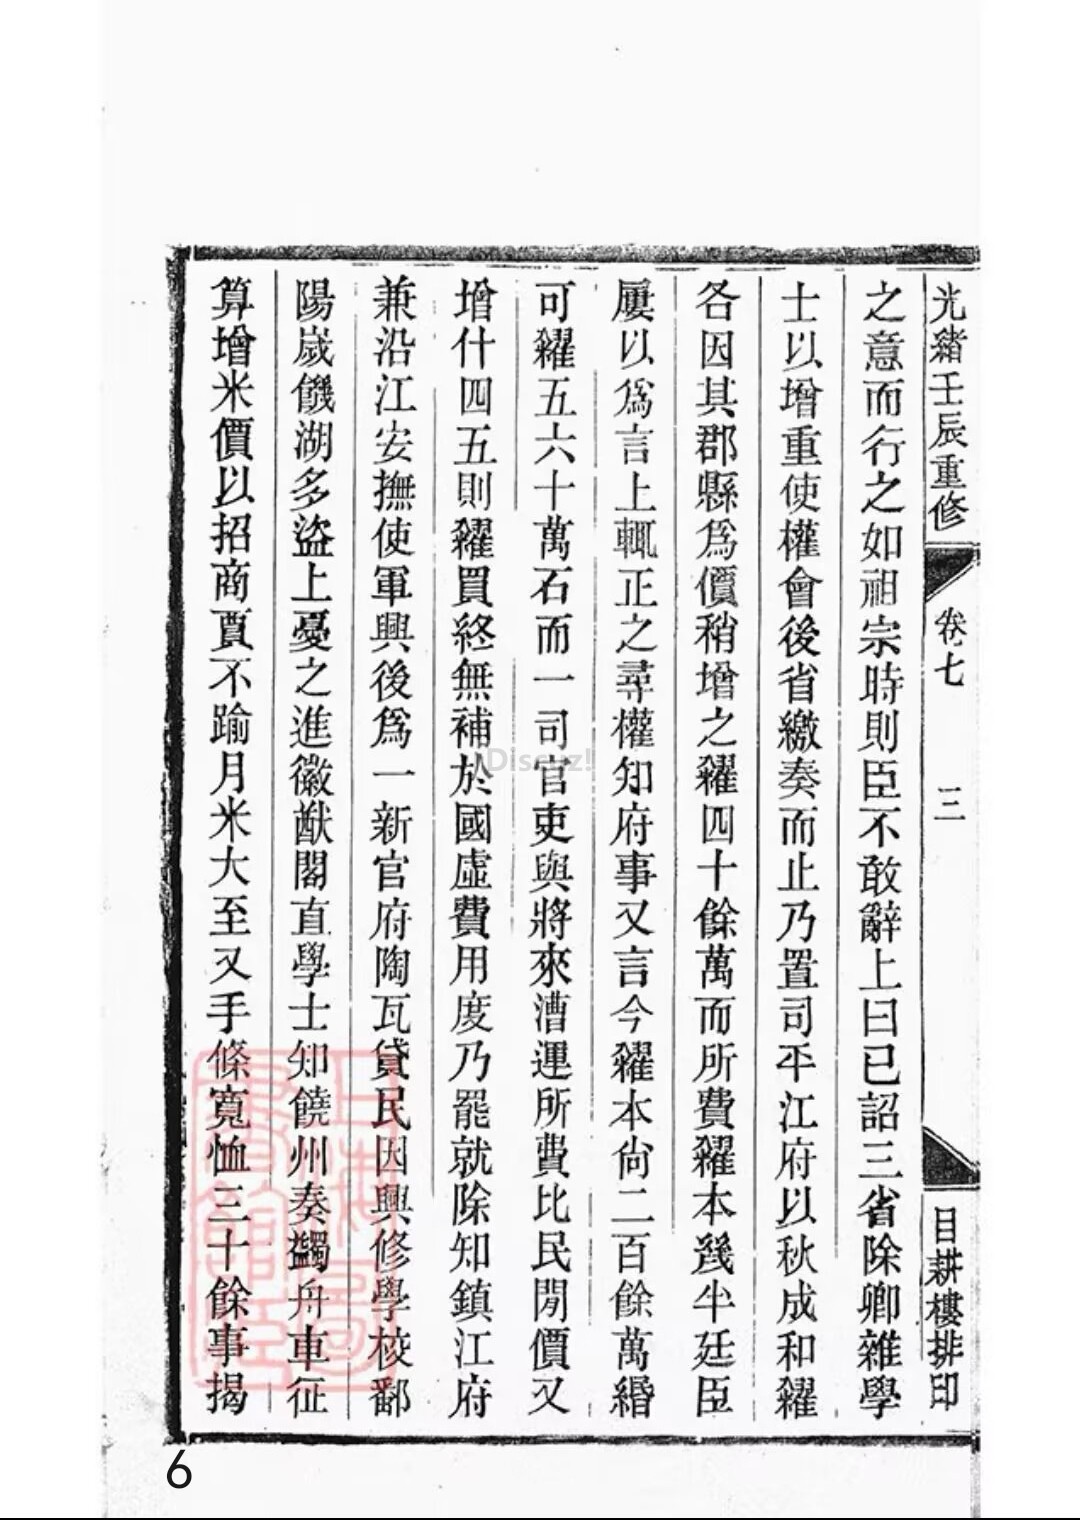 光緒壬辰重修 卷七 三 目耕樓排印
之意而行之如祖宗時則臣不敢辭上曰已詔三省除卿雜學
士以增重使權會後省繳奏而止乃置司平江府以秋成和糴
各因其郡縣爲價稍增之糴四十餘萬而所費糴本幾半廷臣
屢以爲言上輒正之尋權知府事又言今糴本尙二百餘萬緡
可糴五六十萬石而一司官吏與將來漕運所費比民閒價又
增什四五則糴買終無補於國虛費用度乃罷就除知鎮江府
兼沿江安撫使軍興後爲一新官府陶瓦貸民因興修學校鄱
陽歲饑湖多盜上憂之進徽猷閣直學士知饒州奏蠲舟車征
算增米價以招商賈不踰月米大至又手條寬恤三十餘事揭
Discuz!
6